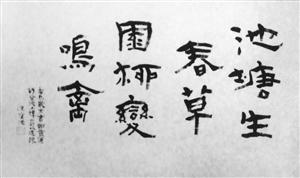 池塘生
春草
園柳變
鳴禽